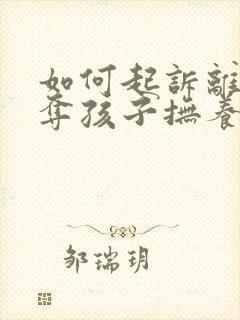 如何起訴離
奪孩子撫養
邹瑞玥